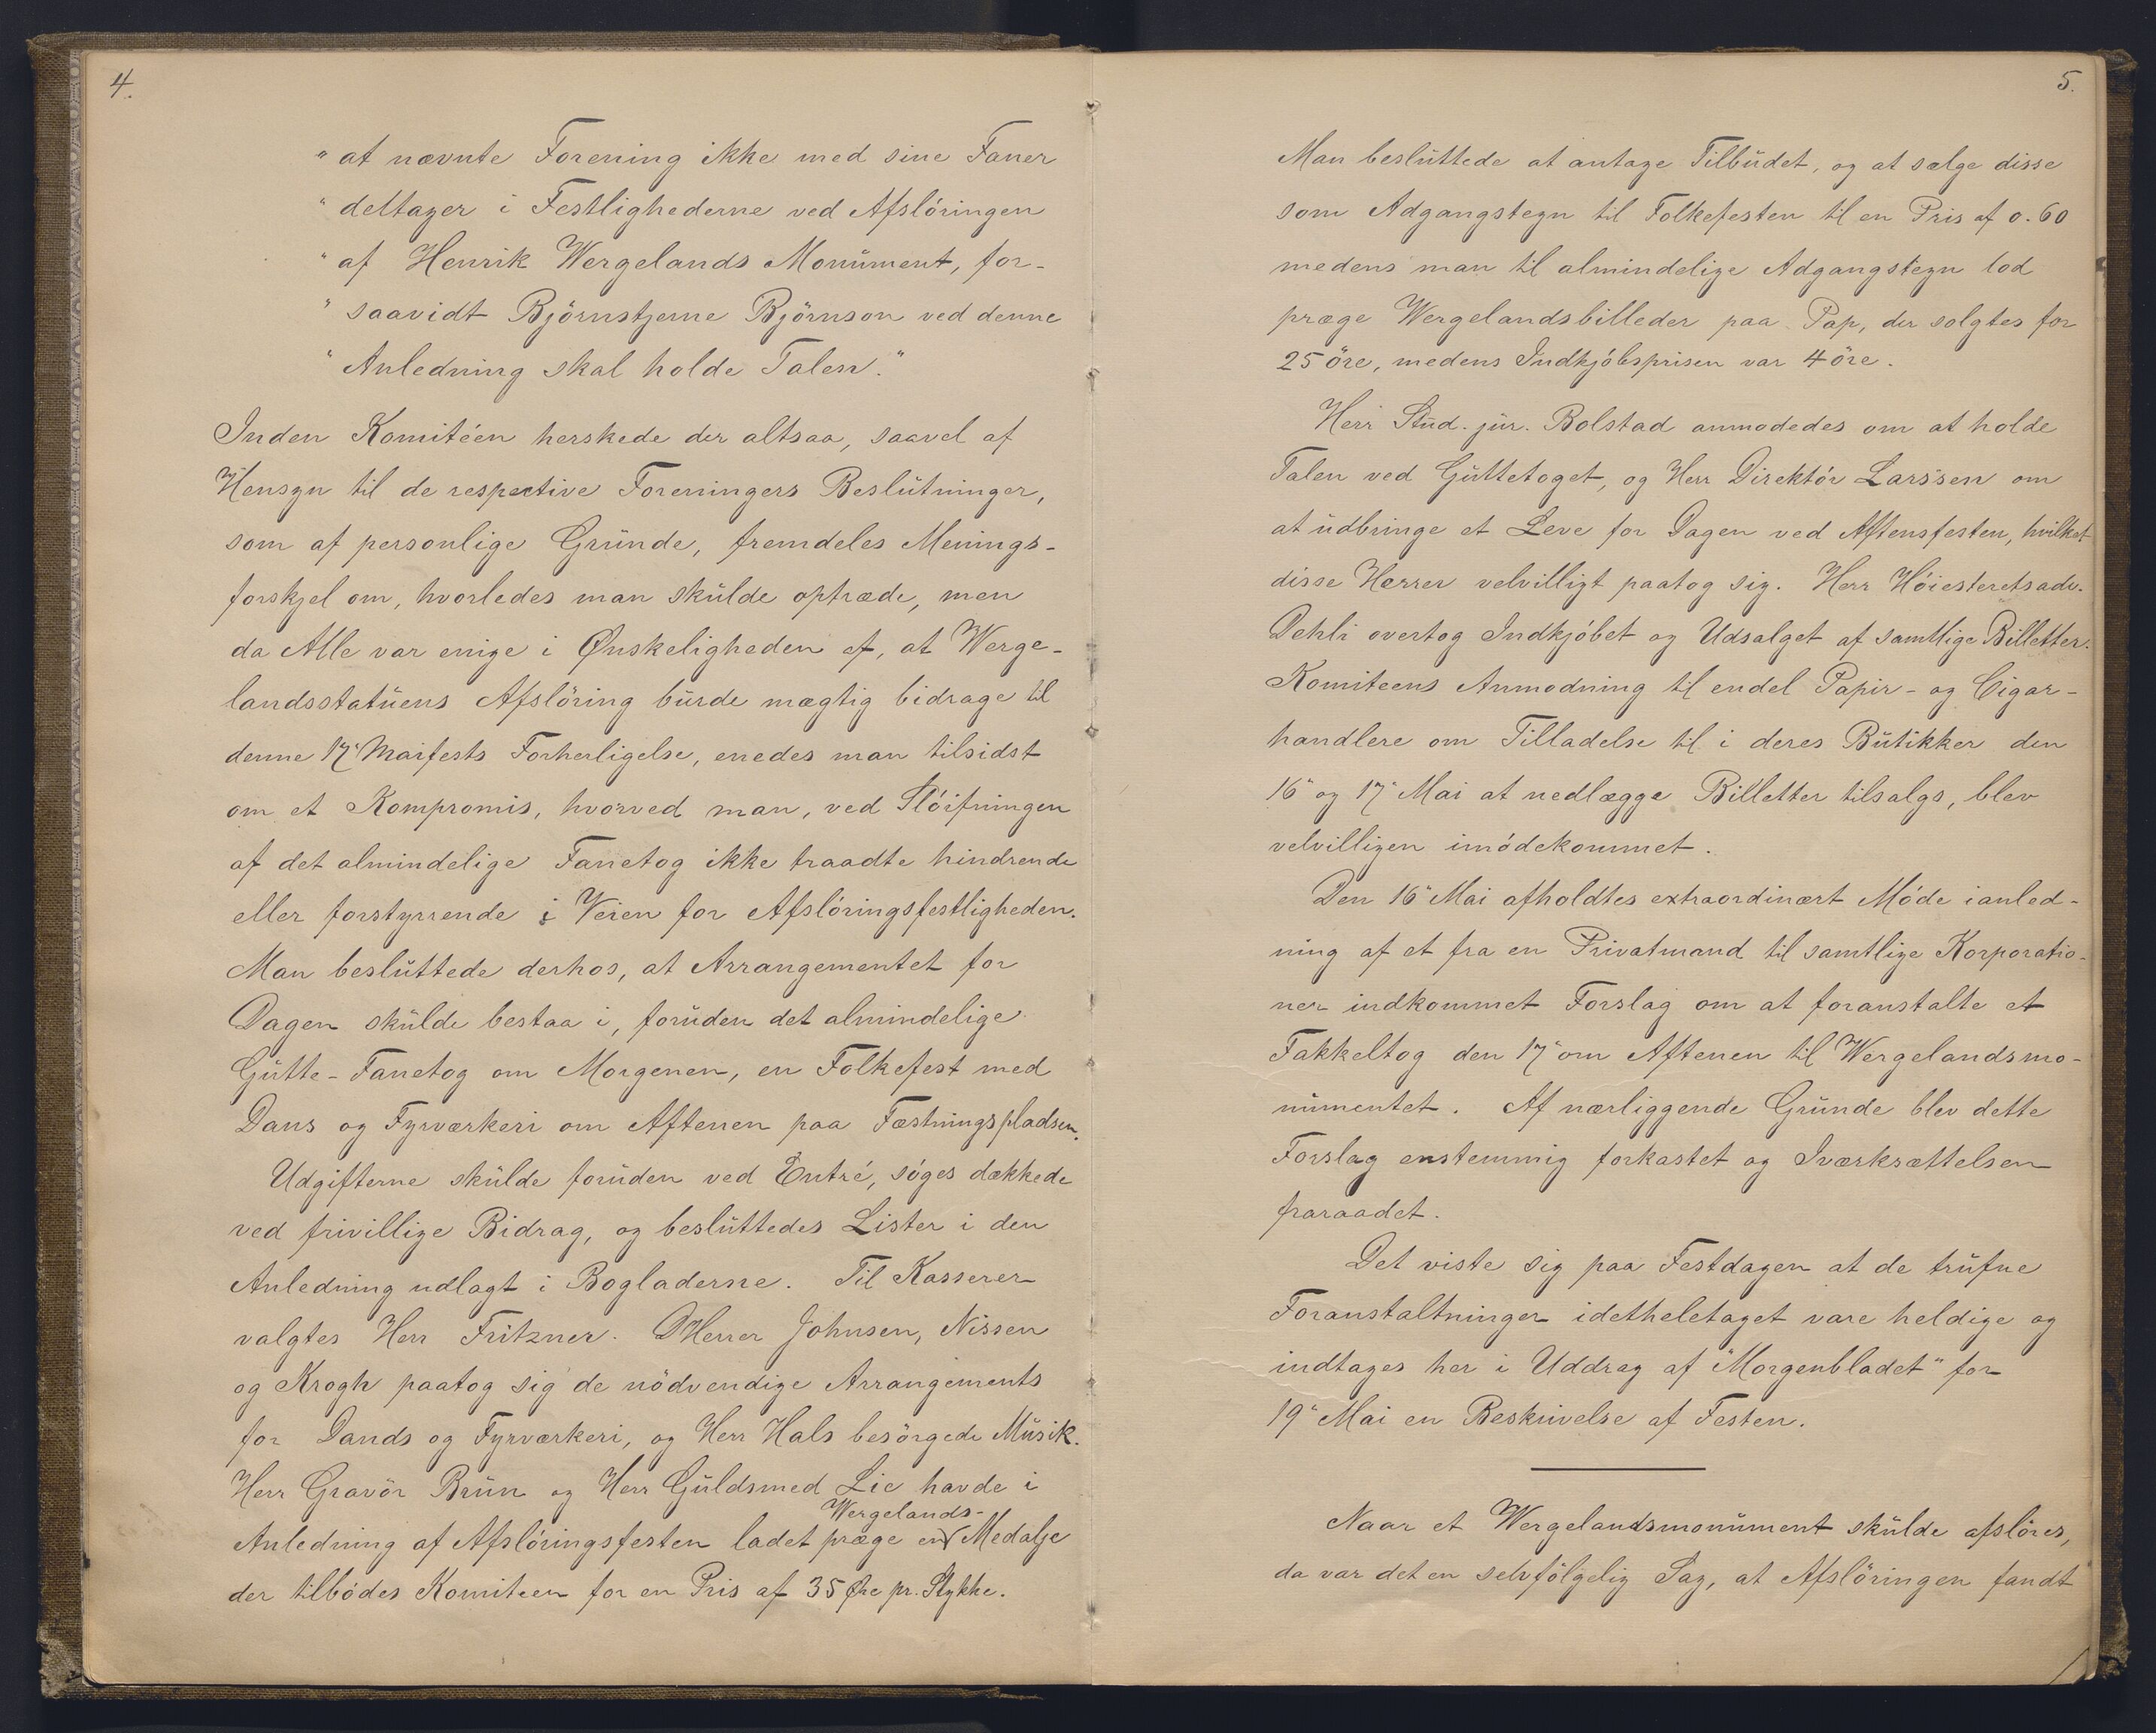 4.
" at nævnte Forening ikke med sine Faner
" deltager i Festlighederne ved Afslöringen
" af Henrik Wergelands Monument, for-
" saavidt Björnstjerne Björnson ved denne
" Anledning skal holde Talen."
Inden Komitéen herskede der altsaa, saavel af
Hensyn til de respective Foreningers Beslutninger,
som af personlige Grunde, fremdeles Menings-
forskjel om, hvorledes man skulde optræde, men
da Alle var enige i Ønskeligheden af, at Werge-
landsstatuens Afslöring burde mægtig bidrage til
denne 17" Maifests Forherligelse, enedes man tilsidst
om et Kompromis, hvorved man, ved Slöifningen
af det almindelige Fanetog ikke traadte hindrende
eller forstyrrende i Veien for Afslöringsfestligheden.
Man besluttede derhos, at Arrangementet for
Dagen skulde bestaa i, foruden det almindelige
Gutte-Fanetog om Morgenen, en Folkefest med
Dans og Fyrværkeri om Aftenen paa Fæstningspladsen.
Udgifterne skulde foruden ved Entré, söges dækkede
ved frivillige Bidrag, og besluttedes Lister i den
Anledning udlagt i Bogladerne. Til Kasserer
valgtes Herr Fritzner. DHerrer Johnsen, Nissen
og Krogh paatog sig de nödvendige Arrangements
for Dands og Fyrværkeri, og Herr Hals besörgede Musik.
Herr Gravör Brun og Herr Guldsmed Lie havde i
Wergelands-
Anledning af Afslöringsfesten ladet præge en Medalje
der tilbödes Komiteen for en Pris af 35 Øre pr. Stykke.
5.
Man besluttede at antage Tilbudet, og at sælge disse
som Adgangstegn til Folkefesten til en Pris af 0.60
medens man til almindelige Adgangstegn lod
præge Wergelandsbilleder paa Pap, der solgtes for
25 öre, medens Indkjöbsprisen var 4 öre.
Herr Stud. jur. Bolstad anmodedes om at holde
Talen ved Guttetoget, og Herr Direktör Larssen om
at udbringe et Leve for Dagen ved Aftensfesten, hvilket
disse Herrer velvilligt paatog sig. Herr Höiesteretsadv.
Dehli overtog Indkjöbet og Udsalget af samtlige Billetter.
Komiteens Anmodning til endel Papir- og Cigar-
handlere om Tilladelse til i deres Butikker den
16" og 17" Mai at nedlægge Billetter tilsalgs, blev
velvilligen imödekommet.
Den 16" Mai afholdtes extraordinært Möde ianled-
ning af et fra en Privatmand til samtlige Korporatio-
ner indkommet Forslag om at foranstalte et
Fakkeltog den 17" om Aftenen til Wergelandsmo-
numentet. Af nærliggende Grunde blev dette
Forslag enstemmig forkastet og Iværksættelsen
fraraadet.
Det viste sig paa Festdagen at de trufne
Foranstaltninger idetheletaget vare heldige og
indtages her i Uddrag af "Morgenbladet" for
19" Mai en Beskrivelse af Festen.
Naar et Wergelandsmonument skulde afslöres,
da var det en selvfölgelig Sag, at Afslöringen fandt